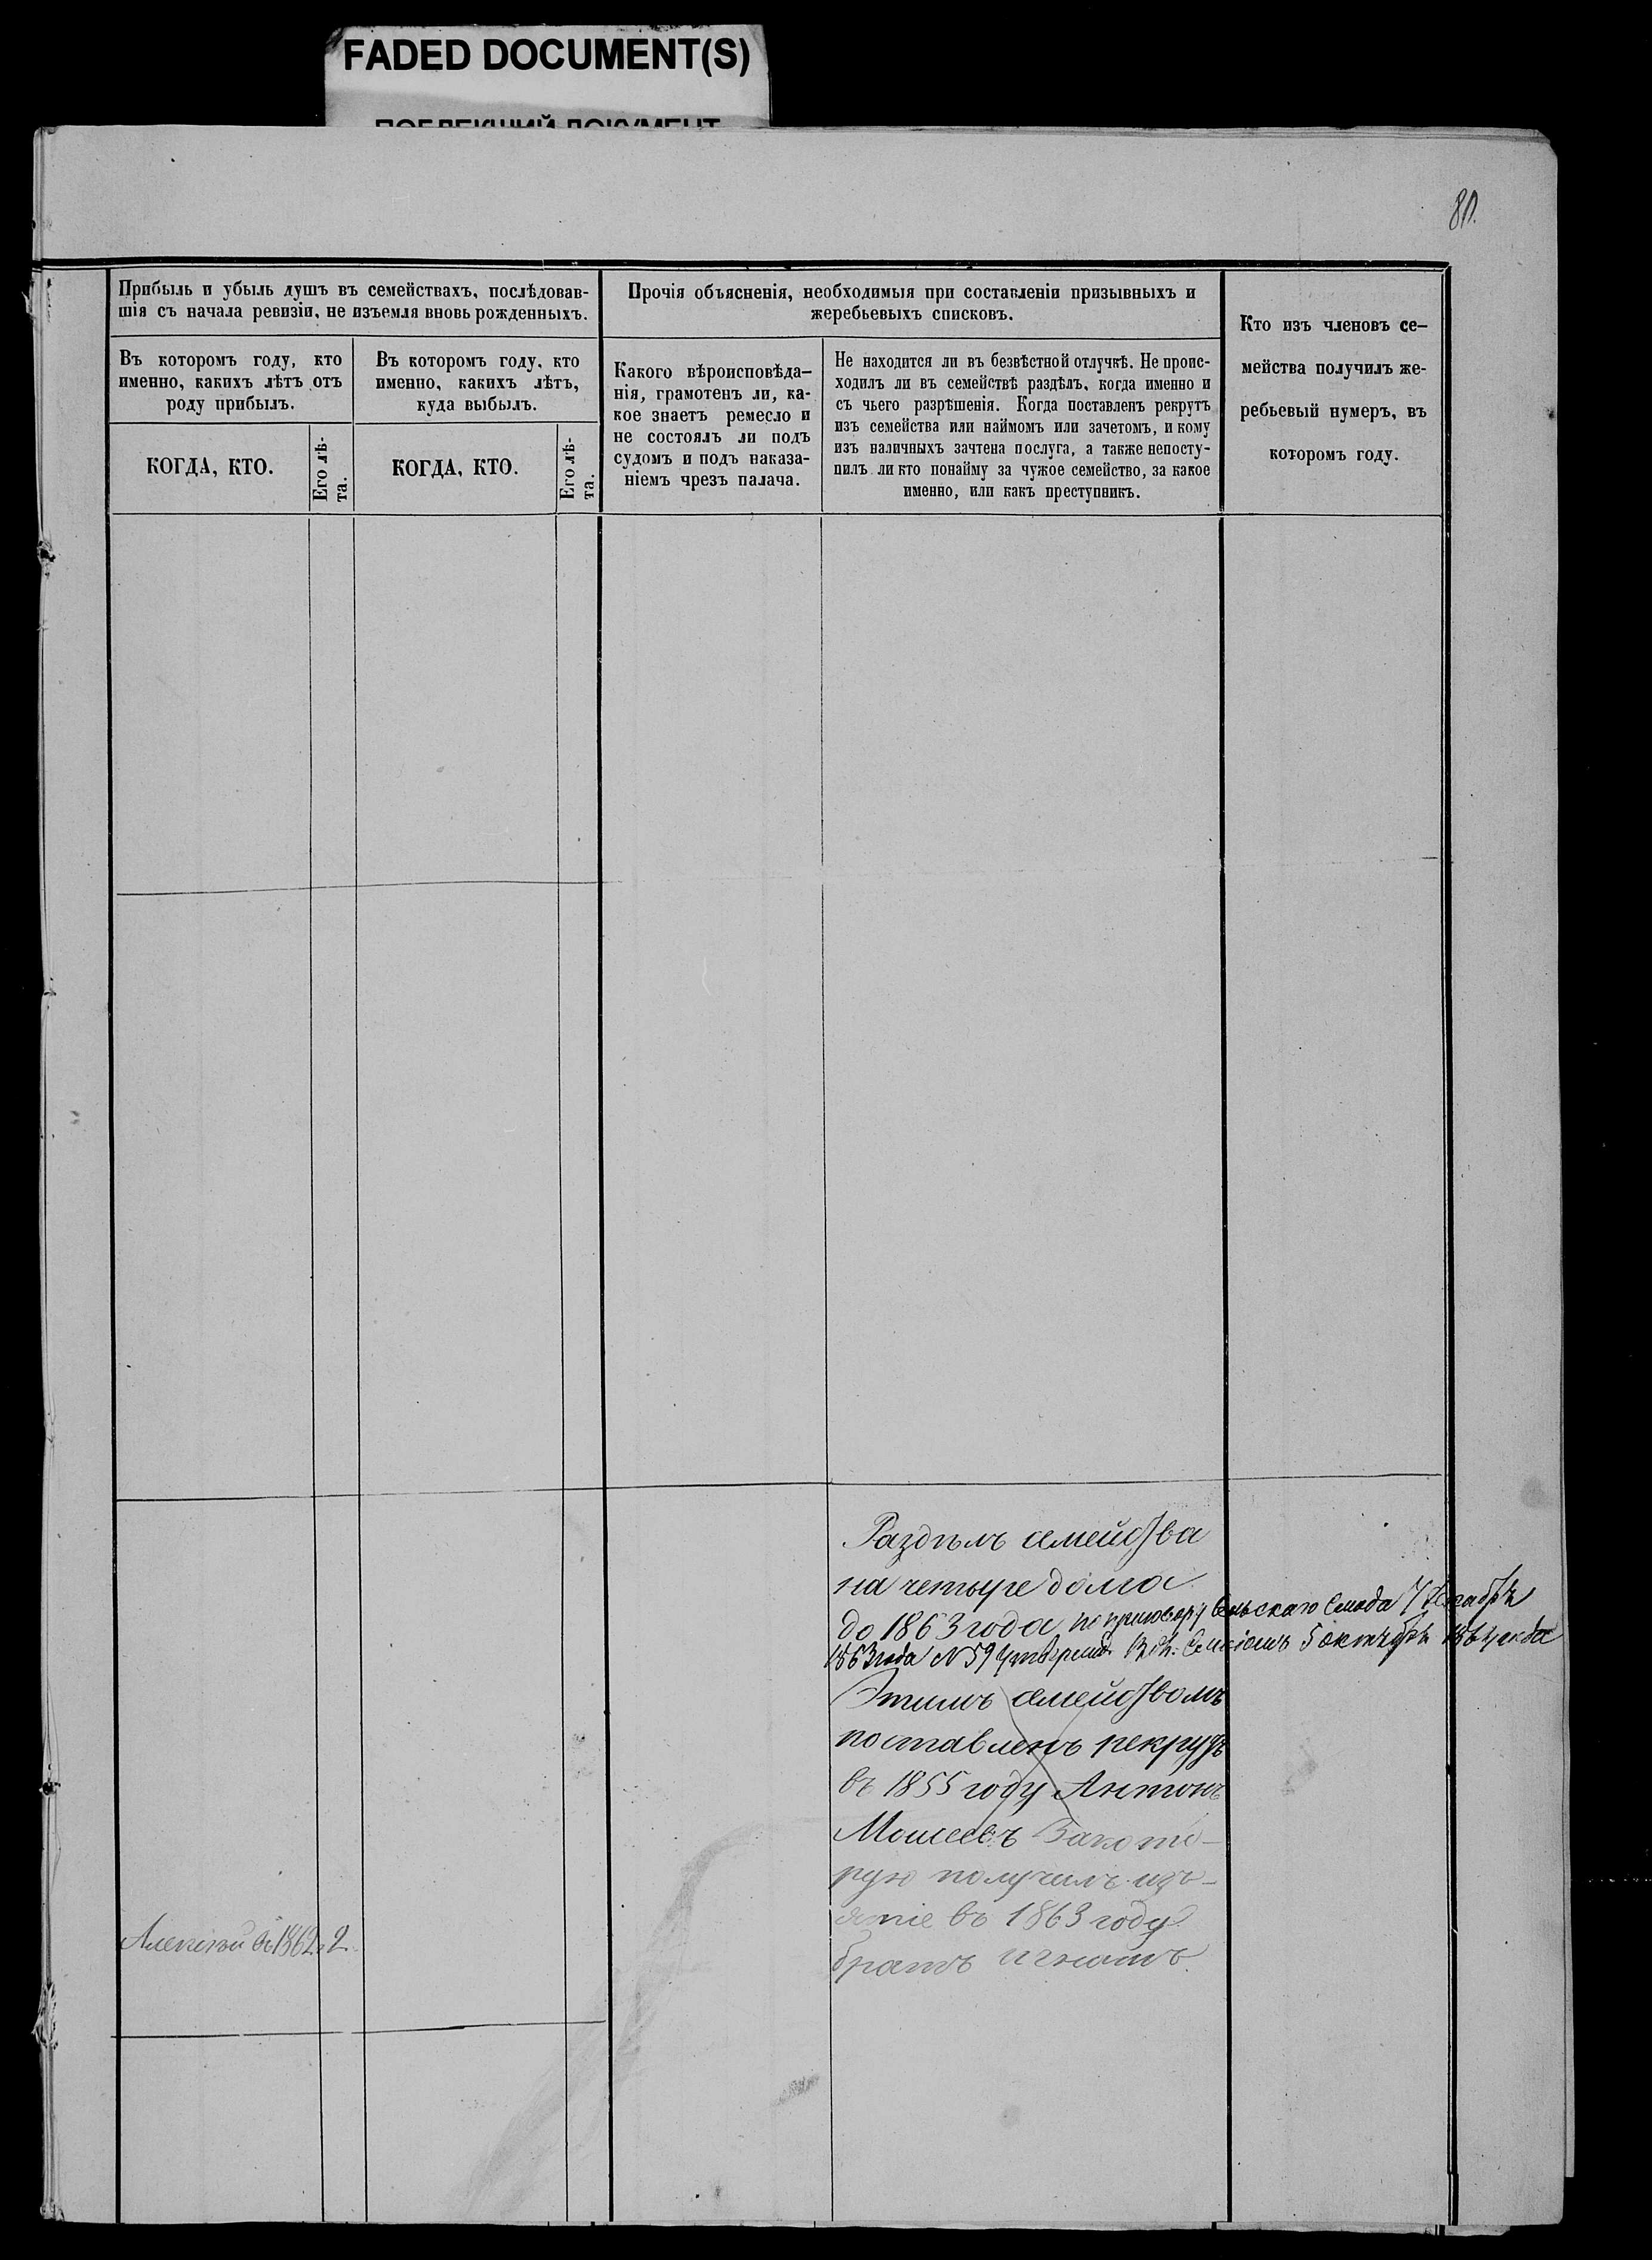 FADED DOCUMENT(S)
ПОБЛЕКШИЙ ДОКУМЕНТ
80.
Прибыль и убыль душъ въ семействахъ, послѣдовав-
шія съ начала ревизіи, не изъемля вновь рожденныхъ.
Въ которомъ году, кто
именно, какихъ лѣтъ отъ
роду прибылъ.
КОГДА, КТО.
Его лѣ-
та.
Въ которомъ году, кто
именно, какихъ лѣтъ,
куда выбылъ.
КОГДА, КТО.
Его лѣ-
та.
Прочія объясненія, необходимыя при составленіи призывныхъ и
жеребьевыхъ списковъ.
Какого вѣроисповѣда-
нія, грамотенъ ли, ка-
кое знаетъ ремесло и
не состоялъ ли подъ
судомъ и подъ наказа-
ніемъ чрезъ палача.
Не находится ли въ безвѣстной отлучкѣ. Не проис-
ходилъ ли въ семействѣ раздѣлъ, когда именно и
съ чьего разрѣшенія. Когда поставленъ рекрутъ
изъ семейства или наймомъ или зачетомъ, и кому
изъ наличныхъ зачтена послуга, а также непосту-
пилъ ли кто понайму за чужое семейство, за какое
именно, или какъ преступникъ.
Кто изъ членовъ се-
мейства получилъ же-
ребьевый нумеръ, въ
которомъ году.
Раздѣлъ семейства
на четыре дома
до 1863 года по приговору Сельскаго Схода 7 декабря
1863 года N 59 октября года
Этимъ семействомъ
поставленъ рекрудъ
въ 1855 году Антонъ
Моисеевъ Закото-
рую получилъ изъ-
ятіе въ 1863 году
братъ Игнатъ.
Алексѣй въ 1862 2